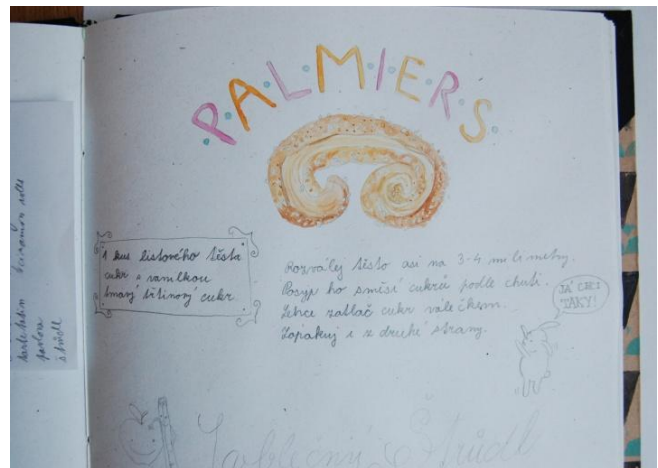 P.A.L.M.I.E.R.S.
1 kus listového těsta
cukr s vanilkou
tmavý třtinový cukr
Rozválej těsto asi na 3-4 milimetry.
Posyp ho směsí cukrů podle chuti.
Lehce zatlač cukr válečkem.
Zopakuj i z druhé strany.
JÁ CHCI
TAKY!
Jablečný Štrůdl
tarte tatin cinnamon rolls
pavlova
štrůdl